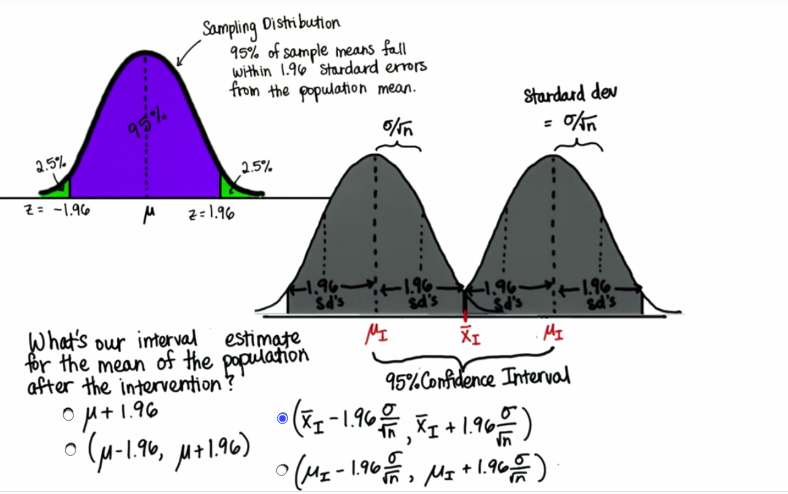 Sampling Distribution
95% of sample means fall
within 1.96 standard errors
from the population mean.
95%
2.5%
2.5%
z = -1.96
μ
z = 1.96
σ/√n
Standard dev
= σ/√n
1.96
sd's
1.96
sd's
1.96
sd's
1.96
sd's
μ_I
x̄_I
μ_I
95% Confidence Interval
What's our interval estimate
for the mean of the population
after the intervention?
μ + 1.96
(μ-1.96, μ+1.96)
(x̄_I - 1.96 σ/√n, x̄_I + 1.96 σ/√n)
(μ_I - 1.96 σ/√n, μ_I + 1.96 σ/√n)